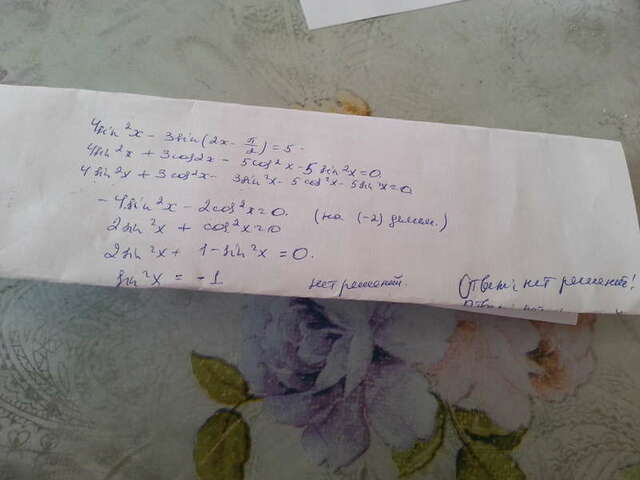 4sin²x - 3sin(2x - π/2) = 5
4sin²x + 3cos2x - 5cos²x - 5sin²x = 0
4sin²x + 3cos²x - 3sin²x - 5cos²x - 5sin²x = 0
- 4sin²x - 2cos²x = 0. (на (-2) делим.)
2sin²x + cos²x = 0
2sin²x + 1 - sin²x = 0.
sin²x = -1 нет решений. Ответ: нет решений!